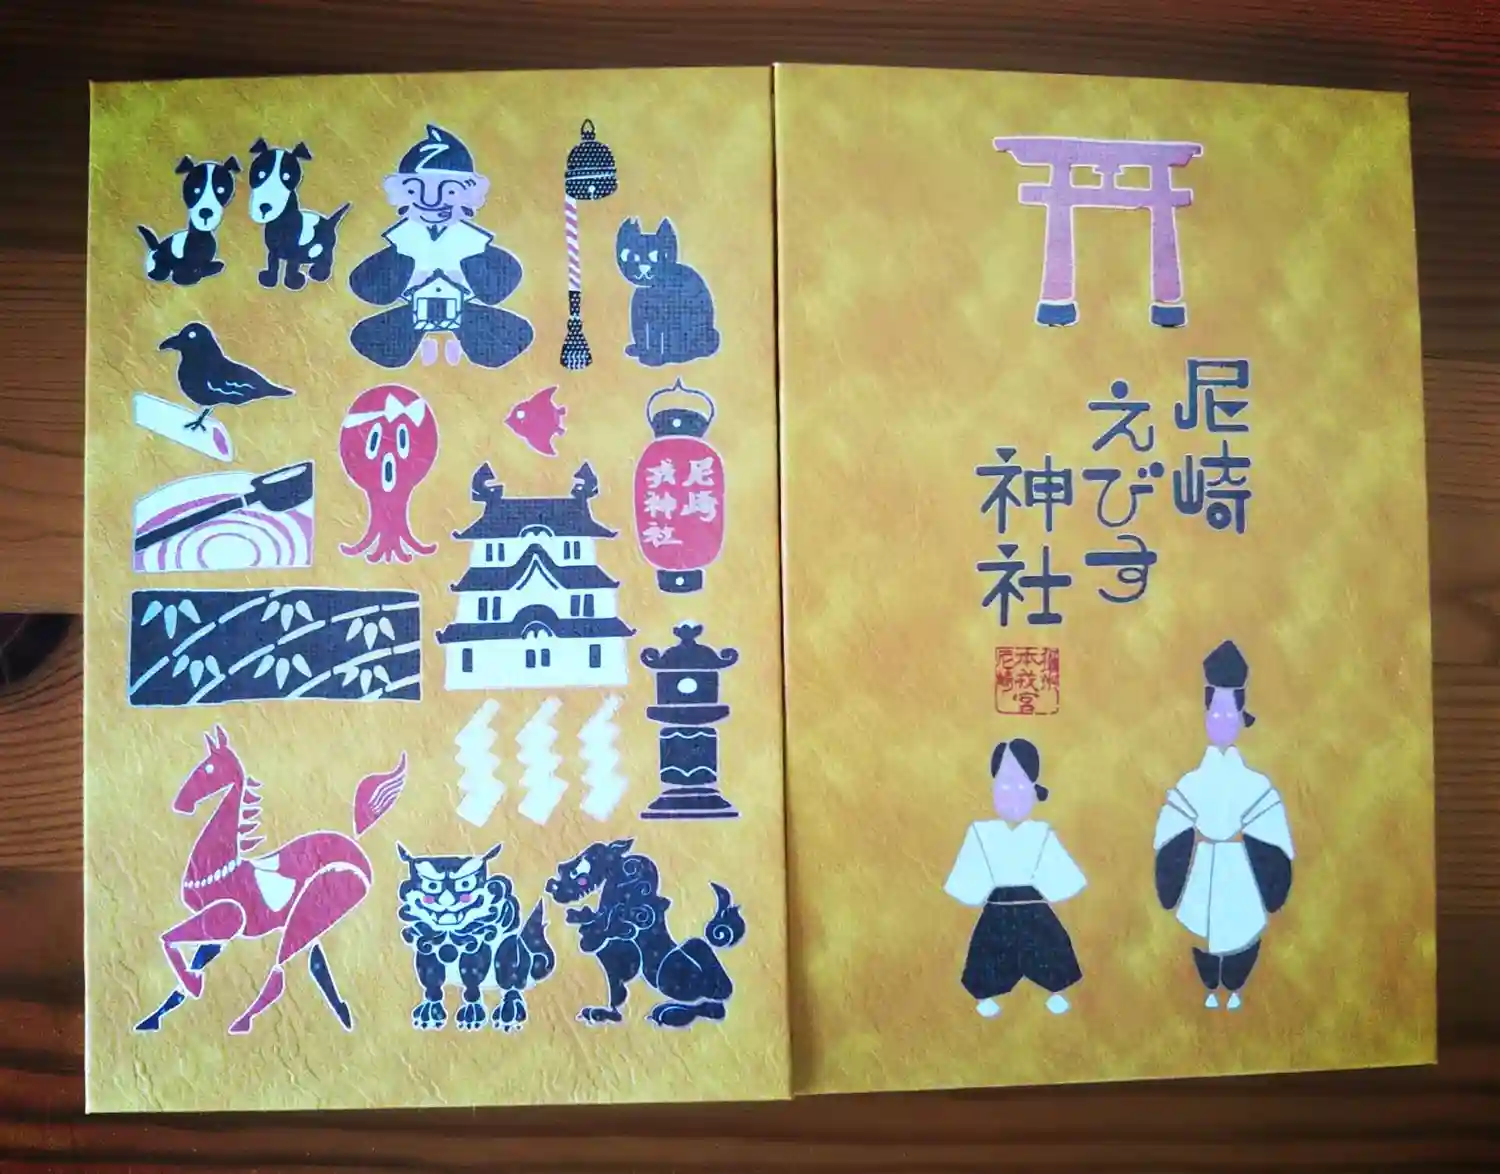 尼崎
えびす
神社
本戎宮
尼崎
尼崎
戎神社
え